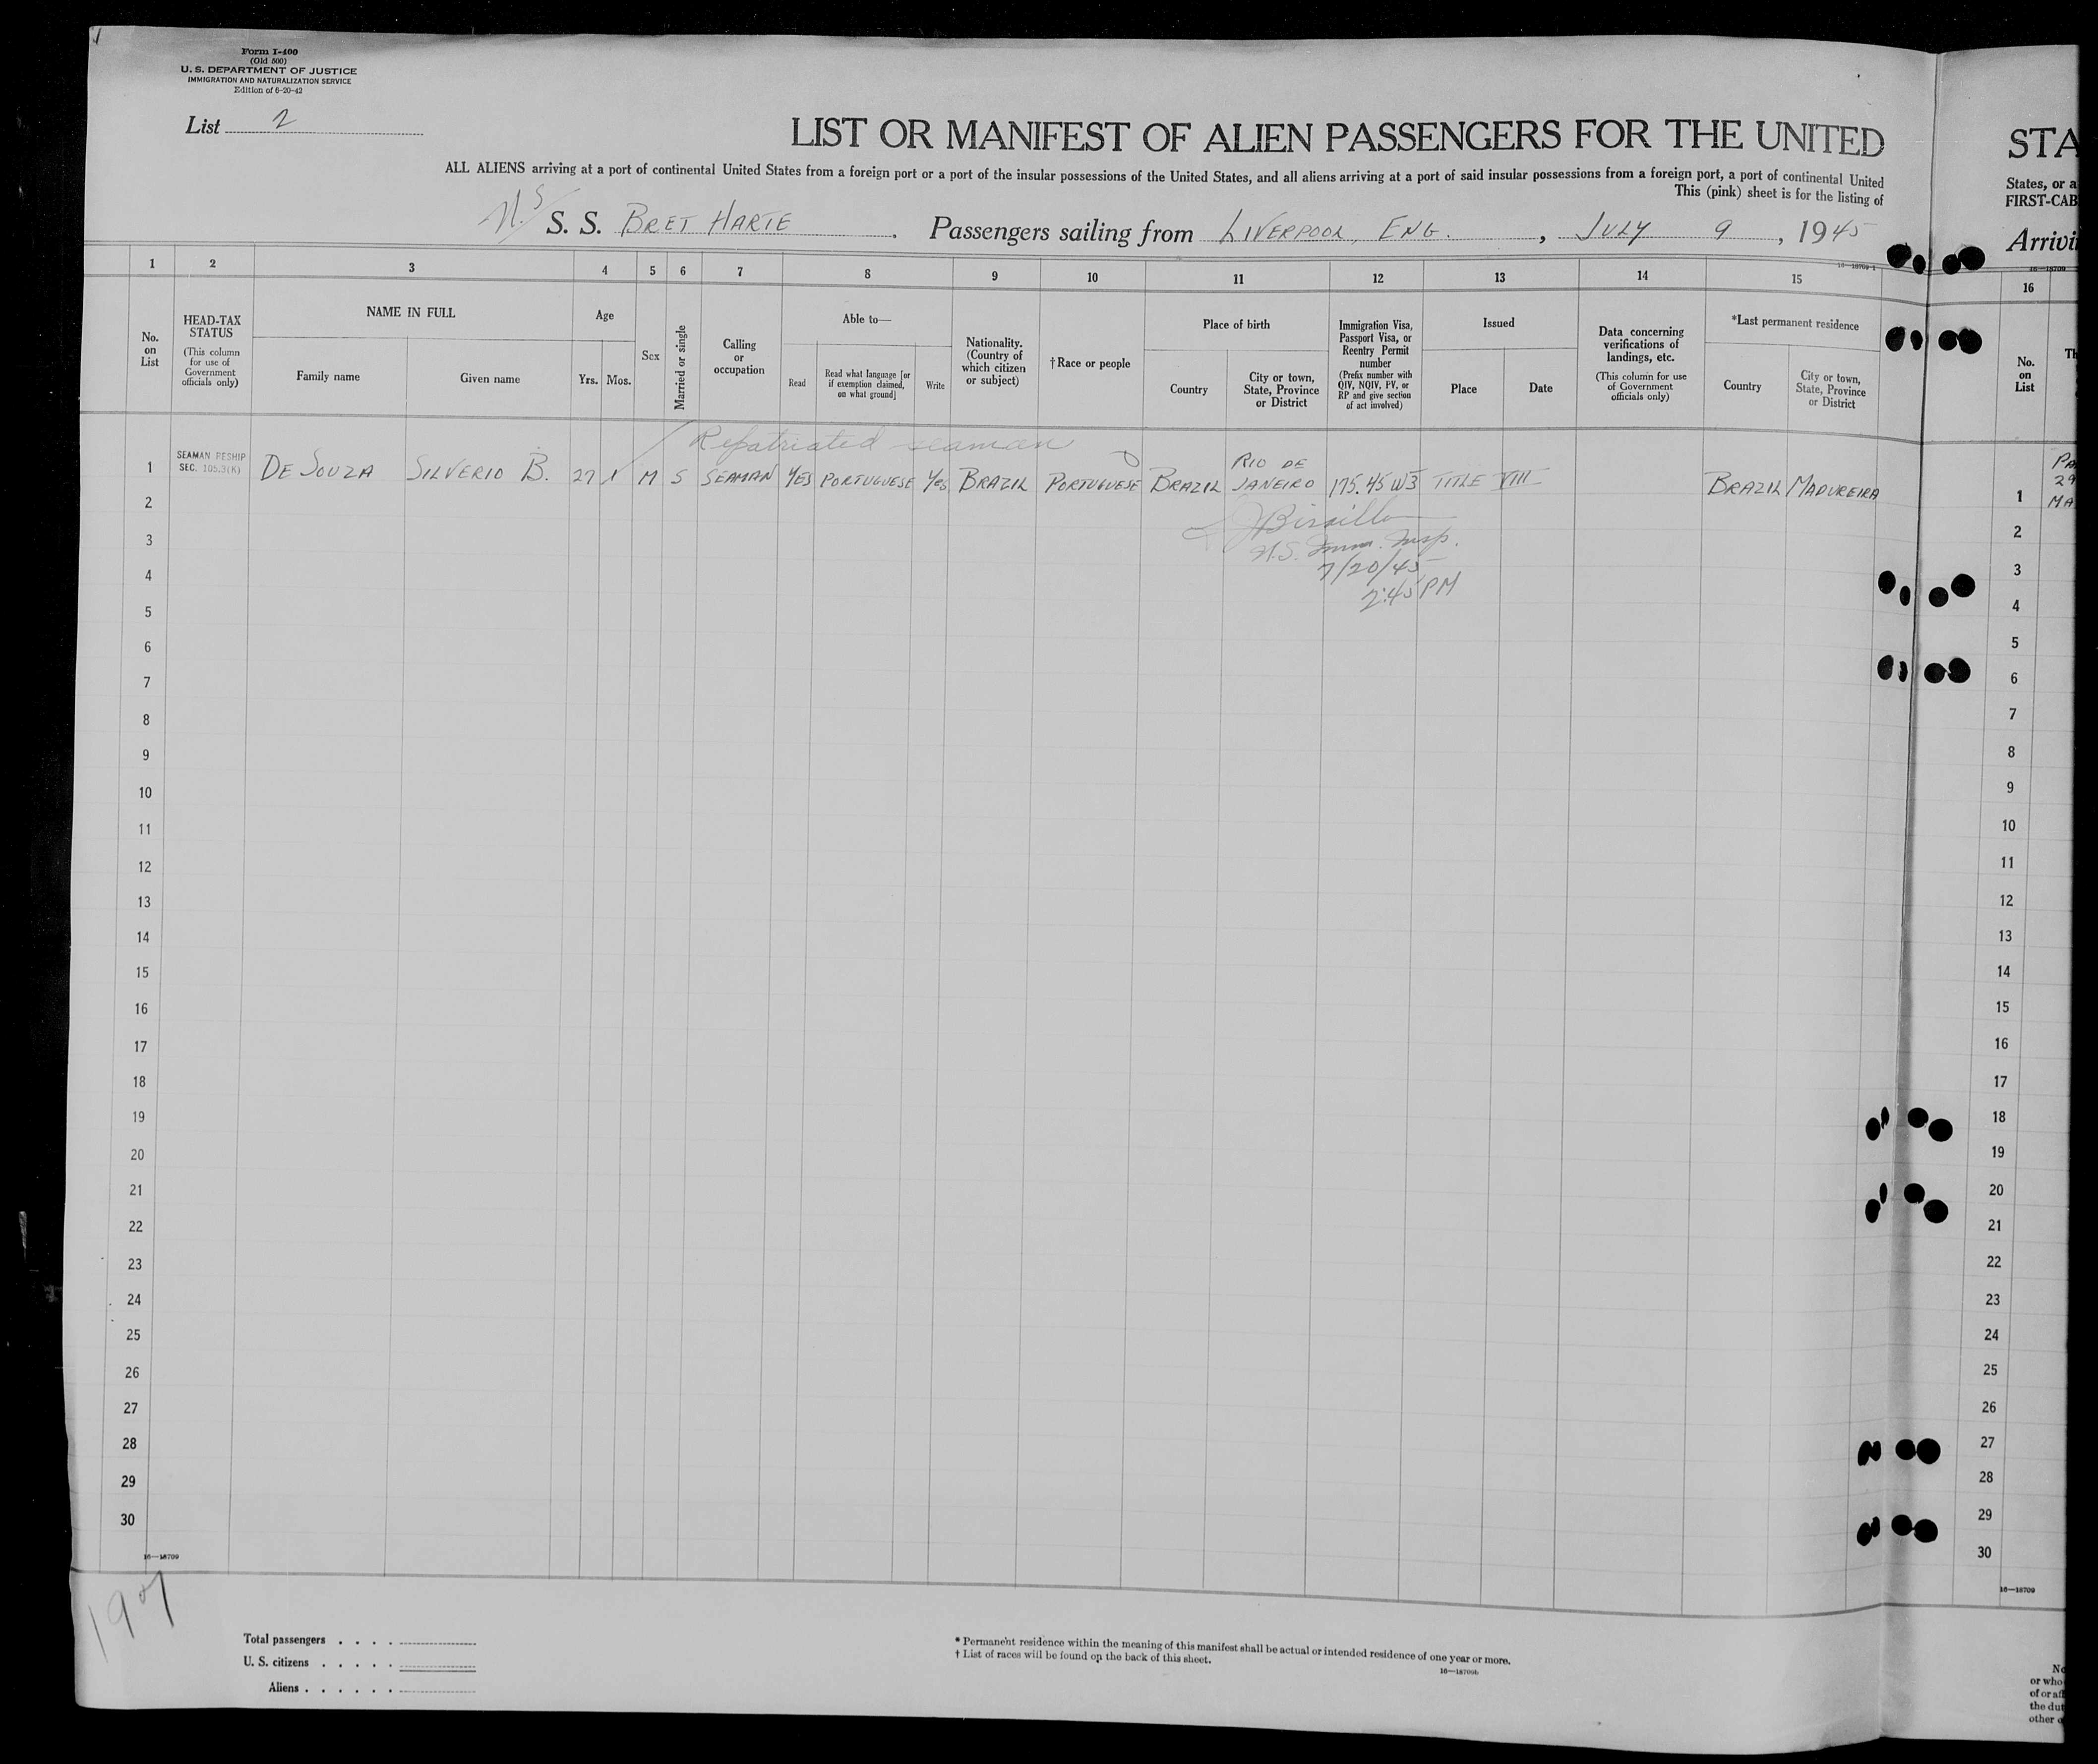 Form I-400
(Old 500)
U. S. DEPARTMENT OF JUSTICE
IMMIGRATION AND NATURALIZATION SERVICE
Edition of 6-20-42
List 2
LIST OR MANIFEST OF ALIEN PASSENGERS FOR THE UNITED
STA
ALL ALIENS arriving at a port of continental United States from a foreign port or a port of the insular possessions of the United States, and all aliens arriving at a port of said insular possessions from a foreign port, a port of continental United
This (pink) sheet is for the listing of
States, or a
FIRST-CAB
S. S. BRET HARTE Passengers sailing from LIVERPOOL, ENG. , JULY 9 , 1945
Arrivi
16—18709-1
16—18709
1 2 3 4 5 6 7 8 9 10 11 12 13 14 15
16
No. on List
HEAD-TAX STATUS
(This column for use of Government officials only)
NAME IN FULL
Family name
Given name
Age
Yrs. Mos.
Sex
Married or single
Calling or occupation
Able to—
Read
Read what language [or if exemption claimed, on what ground]
Write
Nationality. (Country of which citizen or subject)
†Race or people
Place of birth
Country
City or town, State, Province or District
Immigration Visa, Passport Visa, or Reentry Permit number
(Prefix number with QIV, NQIV, PV, or RP and give section of act involved)
Issued
Place
Date
Data concerning verifications of landings, etc.
(This column for use of Government officials only)
*Last permanent residence
Country
City or town, State, Province or District
No. on List
Th
Repatriated seaman
SEAMAN RESHIP
SEC. 105.3(K)
1 DE SOUZA SILVERIO B. 27 1 M S SEAMAN YES PORTUGUESE Yes BRAZIL PORTUGUESE BRAZIL RIO DE JANEIRO 175.45 W3 TITLE VIII BRAZIL MADUREIRA
PA
29
MA
U.S. Imm. Insp.
7/20/45
2:45 PM
2
3
4
5
6
7
8
9
10
11
12
13
14
15
16
17
18
19
20
21
22
23
24
25
26
27
28
29
30
1
2
3
4
5
6
7
8
9
10
11
12
13
14
15
16
17
18
19
20
21
22
23
24
25
26
27
28
29
30
16—18709
16—18709
Total passengers . . . .
U. S. citizens . . . . .
Aliens . . . . . .
* Permanent residence within the meaning of this manifest shall be actual or intended residence of one year or more.
† List of races will be found on the back of this sheet.
16—18709b
No
or who
of or aff
the dut
other o